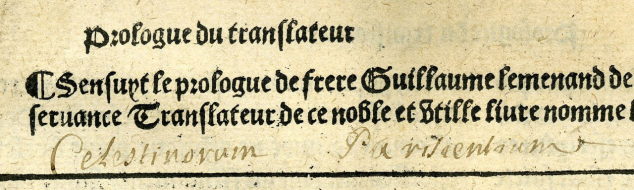 Prologue du translateur
¶ Sensuyt le prologue de frere Guillaume lemenand de
seruance Translateur de ce noble et vtille liure nomme l
Celestinorum Parisiensium